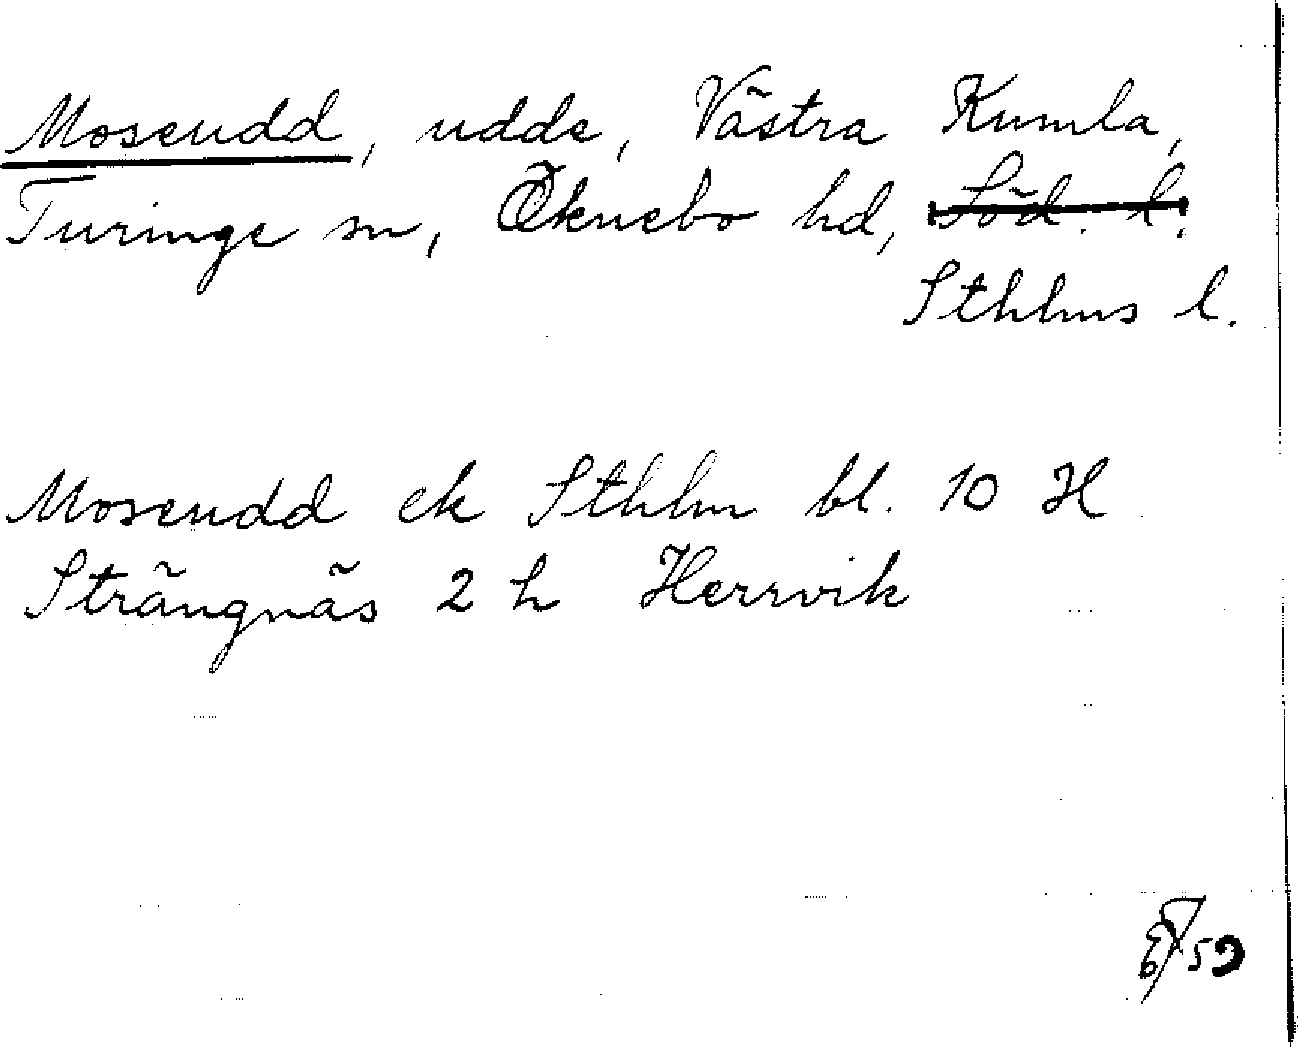 Mosendd, udde, Västra Kumla,
Turinge sn, Öknebo hd, Söd. l.
Sthlms l.
Mosendd ek Sthlm bl. 10 H
Strängnäs 2 h Herrvik
59